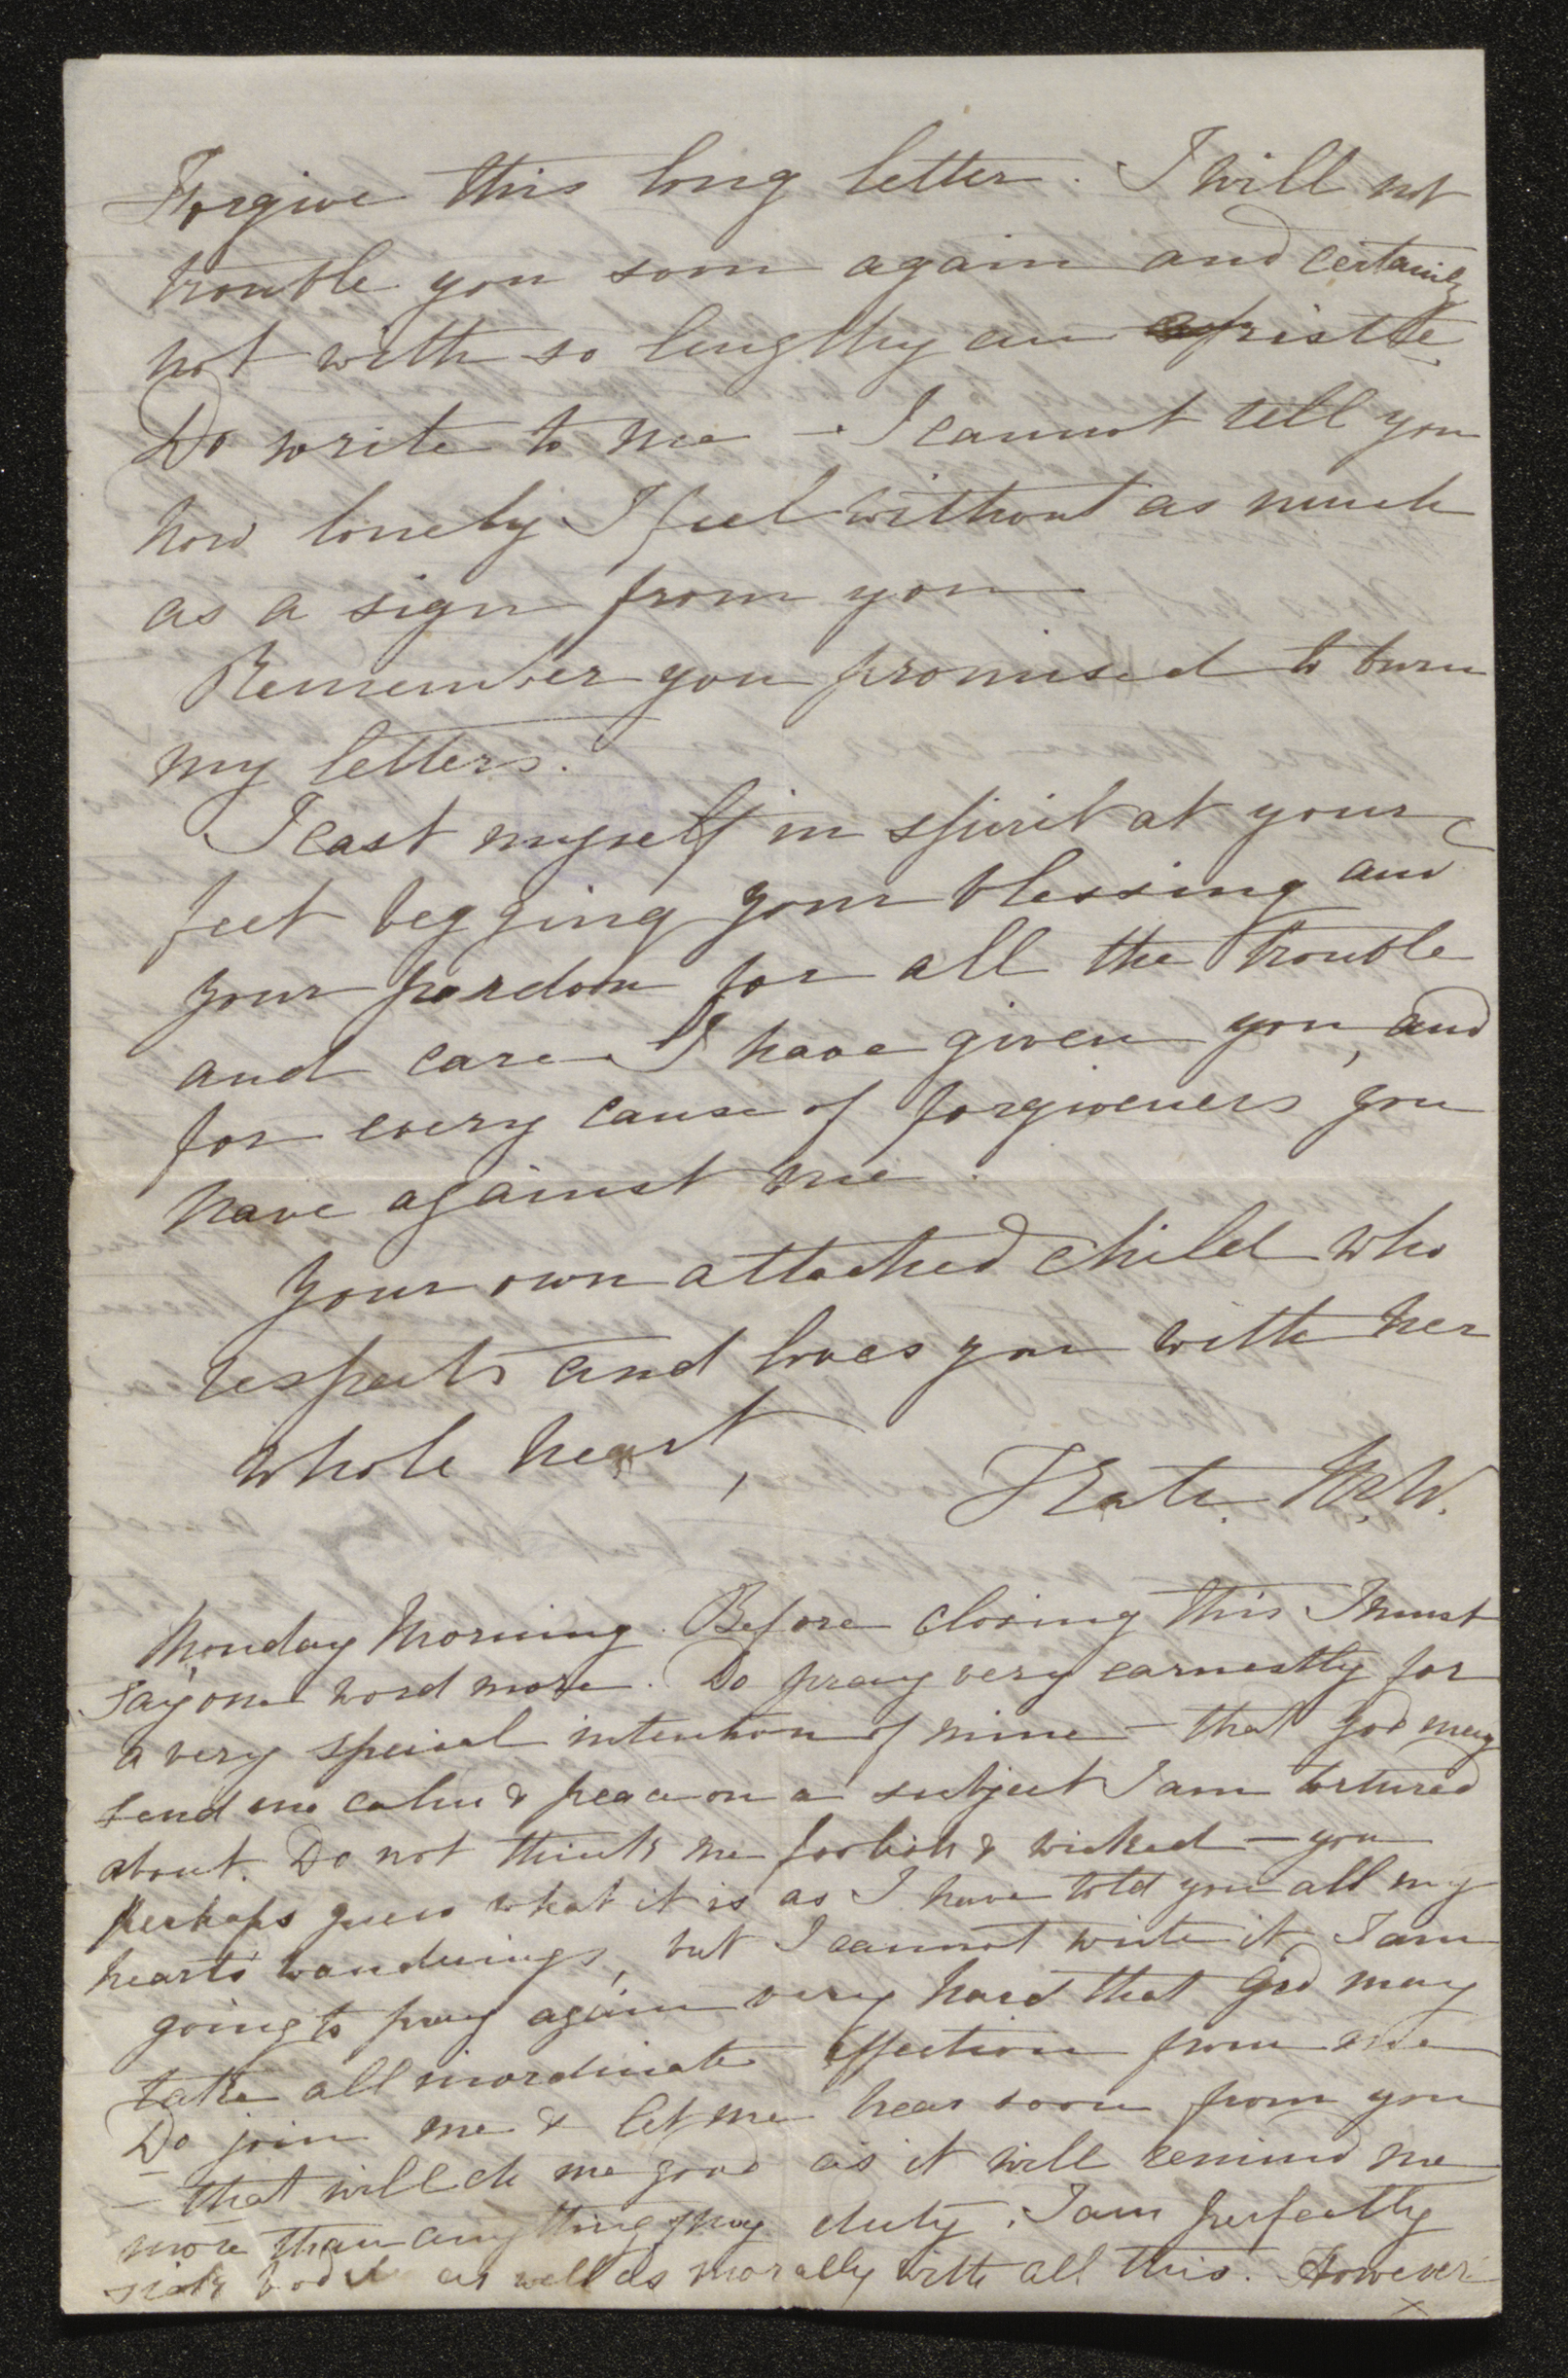 Forgive this long letter. I will not
trouble you soon again and certainly
not with so lengthy an epistle
Do write to me - I cannot tell you
how lonely I feel without as much
as a sign from you
Remember you promised to burn
my letters.
I cast myself in spirit at your
feet begging your blessing and
your pardon for all the trouble
and care I have given you, and
for every cause of forgiveness you
have against me.
Your own attached child who
respects and loves you with her
whole heart,
Kate W.
Monday Morning. Before closing this I must
say one word more. Do pray very earnestly for
a very special intention of mine - that God may
send me calm & peace on a subject I am tortured
about. Do not think me foolish & wicked - you
perhaps guess what it is as I have told you all my
hearts wanderings, but I cannot write it, I am
going to pray again very hard that God may
take all inordinate affection from me
Do join me & let me hear soon from you
- that will do me good as it will remind me
more than anything of my duty. I am perfectly
sick as well as morally with all this. However
x